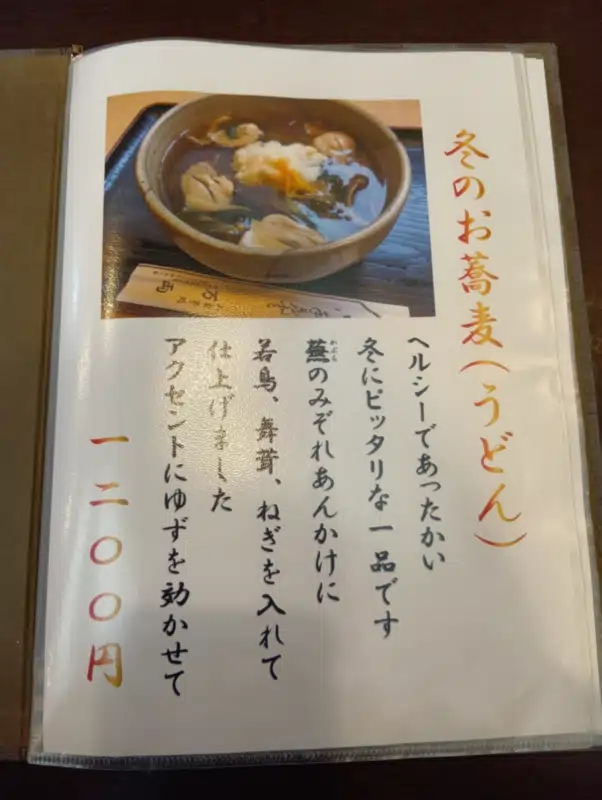 冬のお蕎麦(うどん)
ヘルシーであったかい
冬にピッタリな一品です
蕪のみぞれあんかけに
かぶら
若鳥、舞茸、ねぎを入れて
仕上げました
アクセントにゆずを効かせて
一二〇〇円